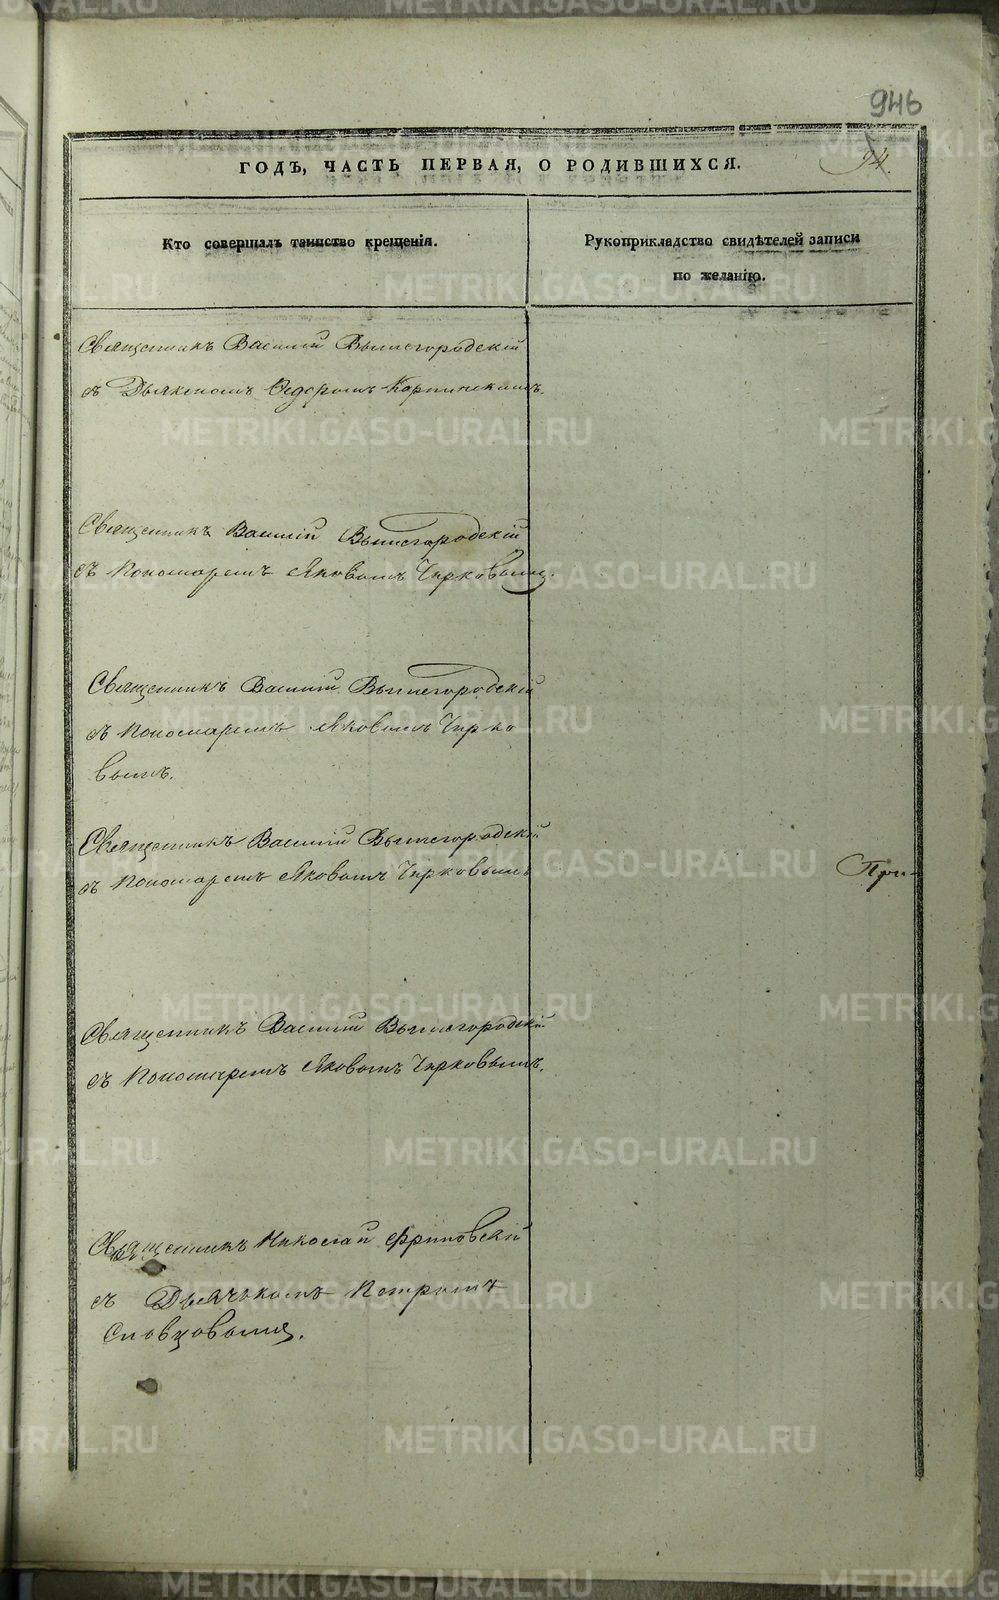 946
94.
ГОДЪ, ЧАСТЬ ПЕРВАЯ, О РОДИВШИХСЯ.
Кто совершалъ таинство крещенія.
Рукоприкладство свидѣтелей записи
по желанію.
Священникъ Василій Вышегородскій
съ Дьякономъ Ѳедоромъ Карпинскимъ.
Священникъ Василій Вышегородскій
съ Пономаремъ Яковомъ Чирковымъ.
Священникъ Василій Вышегородскій
съ Пономаремъ Яковомъ Чирко
вымъ.
Священникъ Василій Вышегородскій
съ Пономаремъ Яковомъ Чирковымъ
При-
Священникъ Василій Вышегородскій
съ Пономаремъ Яковомъ Чирковымъ.
Священникъ Николай
съ Дьячкомъ Петромъ
Словцовымъ.
METRIKI.GASO-URAL.RU